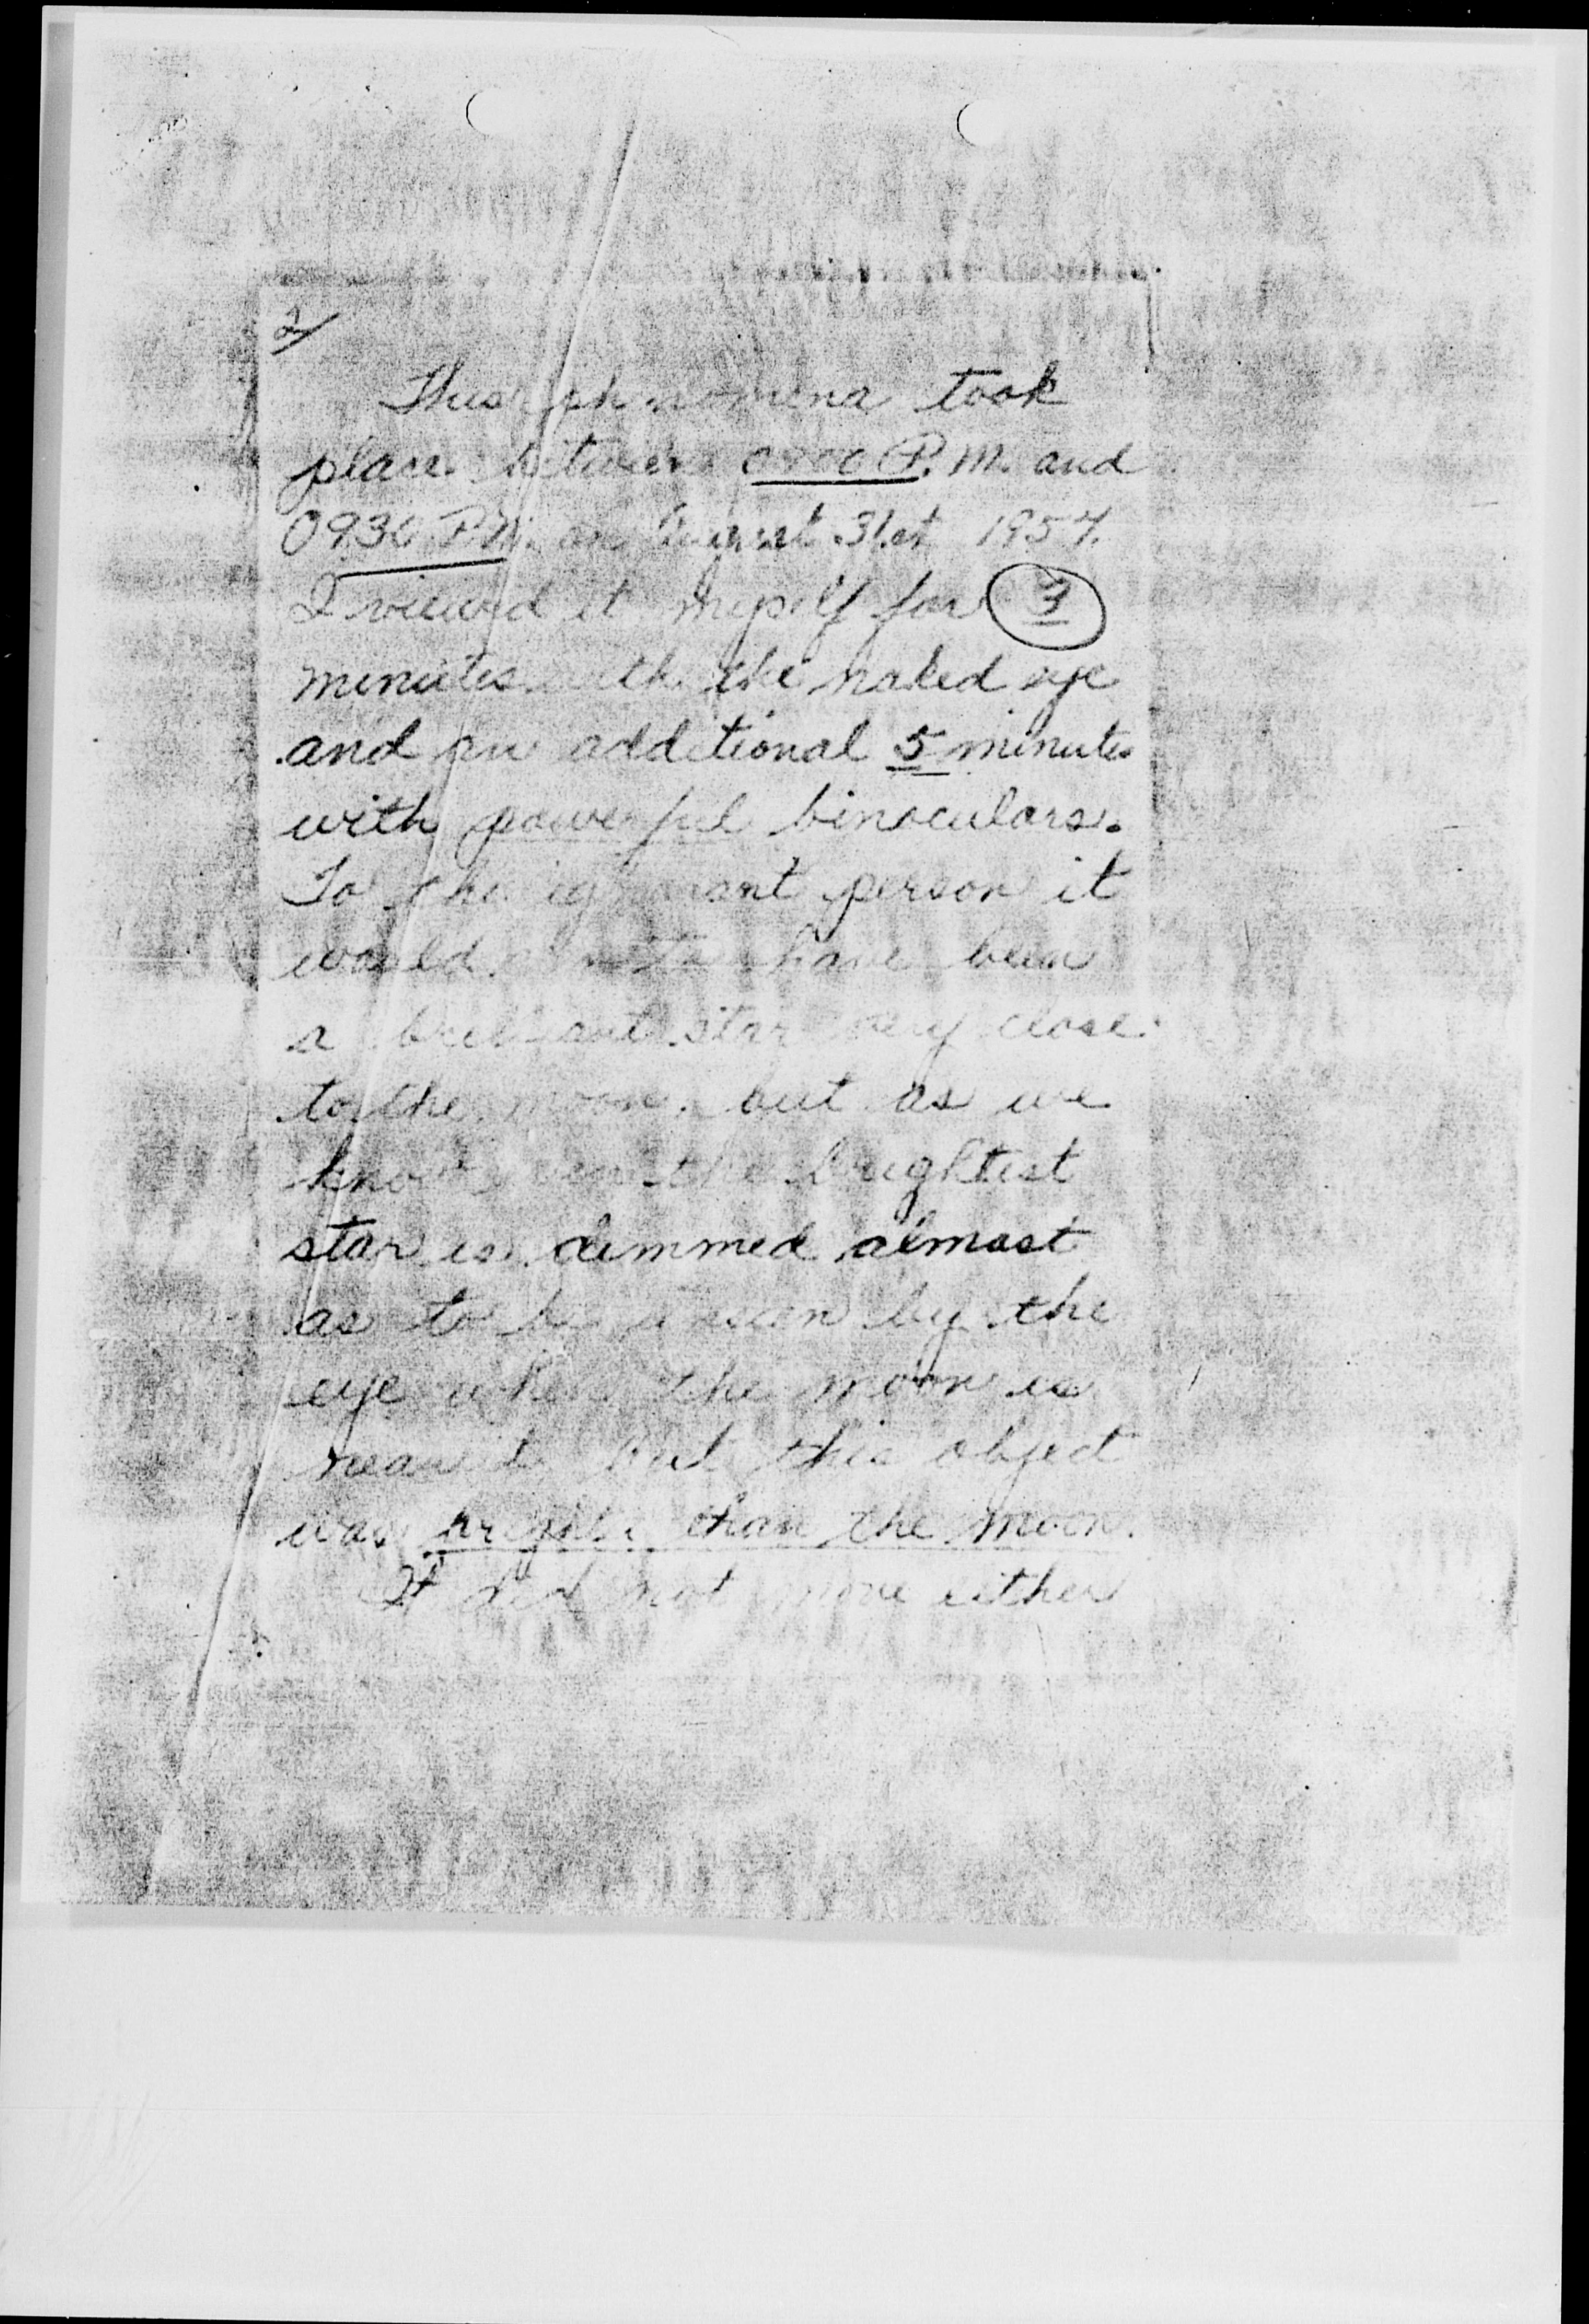 2/
This phenomena took
place between P.M. and
0930 P.M. on August 31st 1957.
I viewed it myself for
minutes with the naked eye
and an additional 5 minutes
with powerful binoculars.
To the ignorant person it
would have been
a brilliant star very close
to the moon, but as we
know even the brightest
star is dimmed almost
as to be unseen by the
eye when the moon is
near it. But this object
was brighter than the moon.
It did not move either